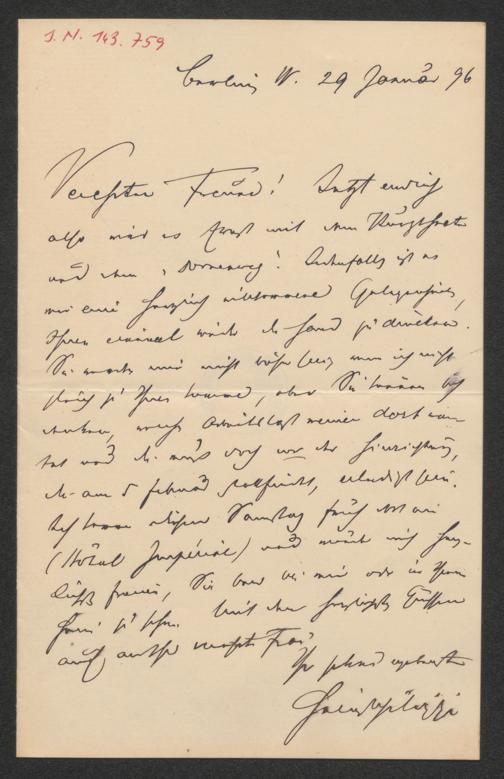 J. N. 143.759
Berlin W. 29 Januar 96
Verehrter Freund! Jetzt endlich
also wird es Ernst mit dem
und dem Jedenfalls ist es
mir eine herzlich willkommene Gelegenheit,
Ihnen einmal wieder die Hand zu drücken.
Sie werden mir nicht böse sein, wenn ich nicht
gleich zu Ihnen komme, aber Sie können sich
denken, welche Arbeitslast meiner dort
tet und die muß doch vor der Hinrichtung,
die am 5 Februar stattfindet, erledigt sein.
Ich komme diesen Samstag früh dort an
(Hôtel Impérial) und würde mich herz-
lichst freuen, Sie bei mir oder in Ihrem
Heim zu sehn. Mit den herzlichsten Grüßen
auch an Ihre verehrte Frau
Ihr